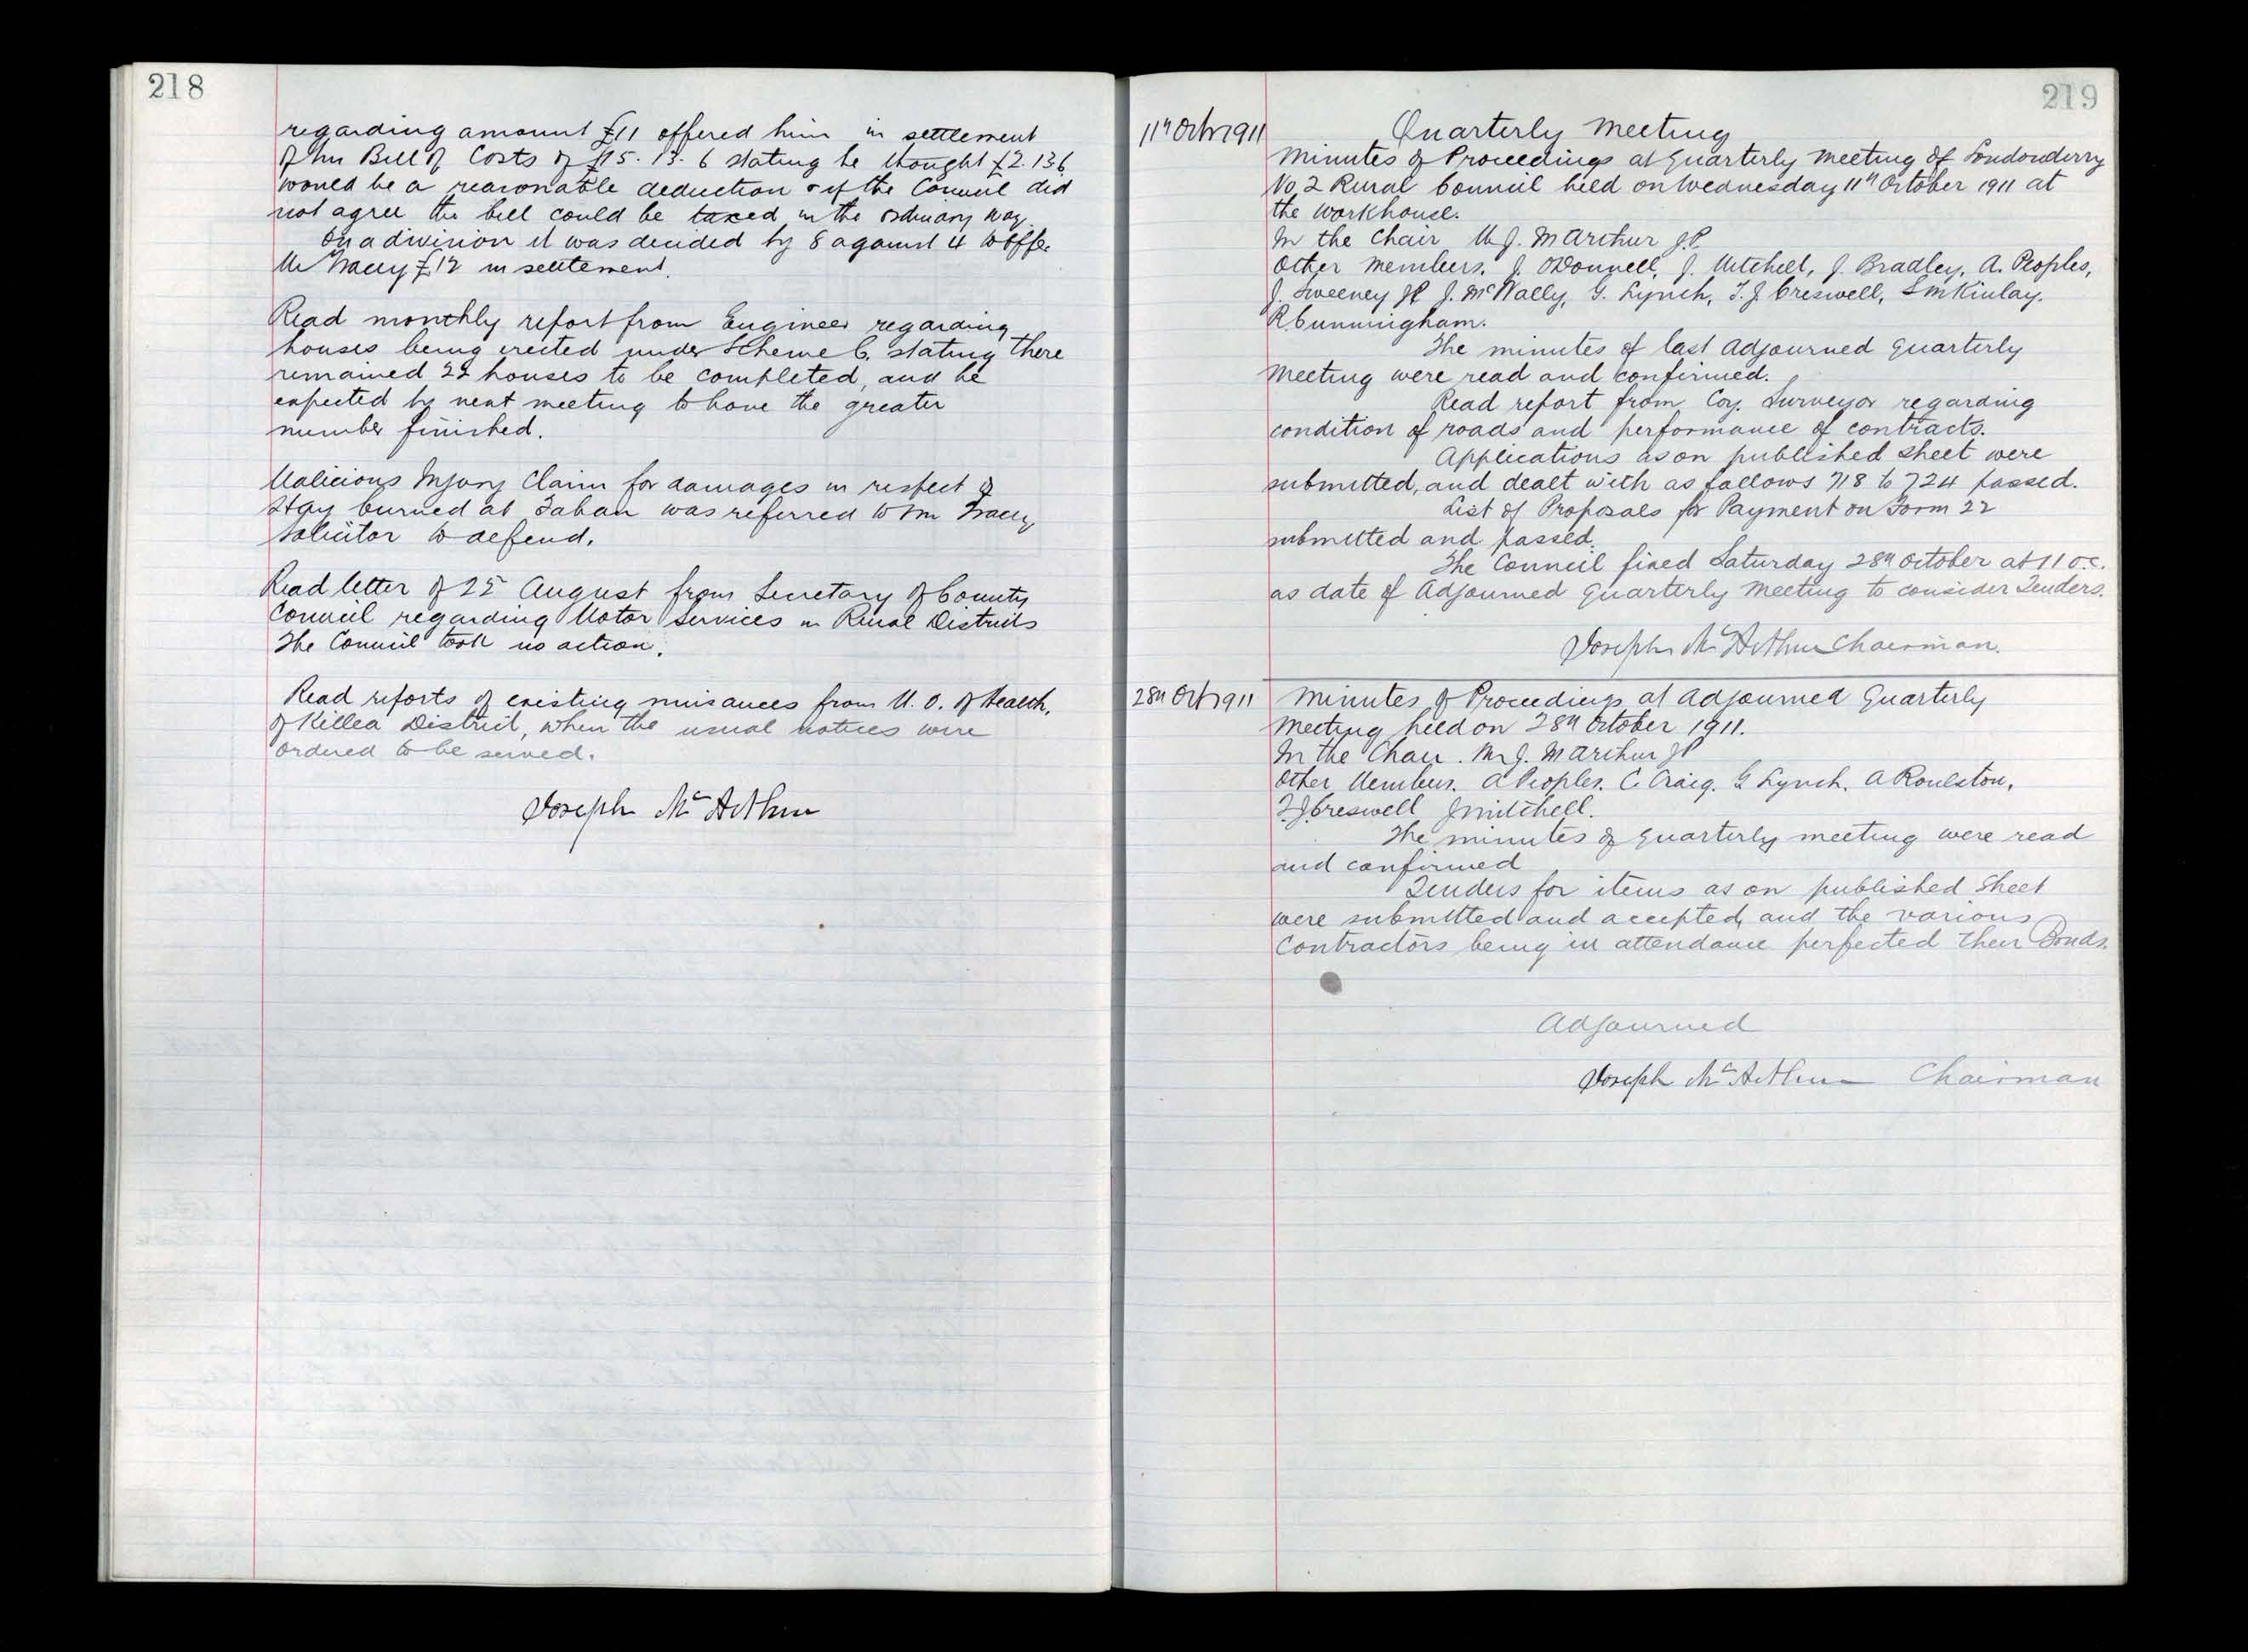 218
regarding amount £11 offered him in settlement
of his Bill of Costs of £15. 13. 6 stating he thought £2. 13 6
would be a reasonable deduction & if the Council did
not agree the bill could be taxed in the ordinary way.
On a division it was decided by 8 against 4 to offer
Mr Tracey £12 in settlement.
Read monthly report from Engineer regarding
houses being erected under Scheme 6, stating there
remained 22 houses to be completed, and he
expected by next meeting to have the greater
number finished.
Malicious Injury Claim for damages in respect of
Hay burned at Taban was referred to Mr Tracey
Solicitor to defend.
Read letter of 25 August from Secretary of County
Council regarding Motor Services in Rural Districts
The Council took no action.
Read reports of existing nuisances from M. O. of Health,
of Killea District, when the usual notices were
ordered to be served.
Joseph McArthur
219
11th Octr 1911
Quarterly Meeting
Minutes of Proceedings at Quarterly Meeting of Londonderry
No 2 Rural Council held on Wednesday 11th October 1911 at
the Workhouse.
In the Chair Mr J. McArthur J.P.
Other Members. J. O'Donnell, J. Mitchell, J. Bradley, A. Peoples,
J. Sweeney JP J. McNally, G. Lynch, T. J. Creswell, S McKinlay.
R Cunningham.
The minutes of last Adjourned Quarterly
Meeting were read and confirmed.
Read report from Coy. Surveyor regarding
condition of roads and performance of contracts.
Applications as on published sheet were
submitted, and dealt with as follows 718 to 724 passed.
List of Proposals for Payment on Form 22
submitted and passed.
The Council fixed Saturday 28th October at 11 o.c.
as date of Adjourned Quarterly Meeting to consider Tenders.
Joseph McArthur Chairman.
28th Oct 1911
Minutes of Proceedings at Adjourned Quarterly
Meeting held on 28th October 1911.
In the Chair. Mr J. McArthur JP
Other Members. A Peoples. C. Craig. G Lynch. A Roulston,
T. J. Creswell J Mitchell.
The minutes of Quarterly meeting were read
and confirmed
Tenders for items as on published Sheet
were submitted and accepted, and the various
Contractors being in attendance perfected their Bonds.
Adjourned
Joseph McArthur Chairman